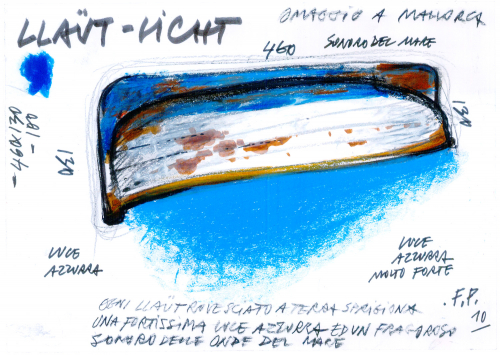 LLAÜT-LICHT
OMAGGIO A MALLORCA
460 SONORO DEL MARE
-460x130
-180
130
130
LUCE
AZZURRA
LUCE
AZZURRA
MOLTO FORTE
OGNI LLAÜT ROVESCIATO A TERRA SPRIGIONA
UNA FORTISSIMA LUCE AZZURRA ED UN FRAGOROSO
SONORO DELLE ONDE DEL MARE
.F.P.
10